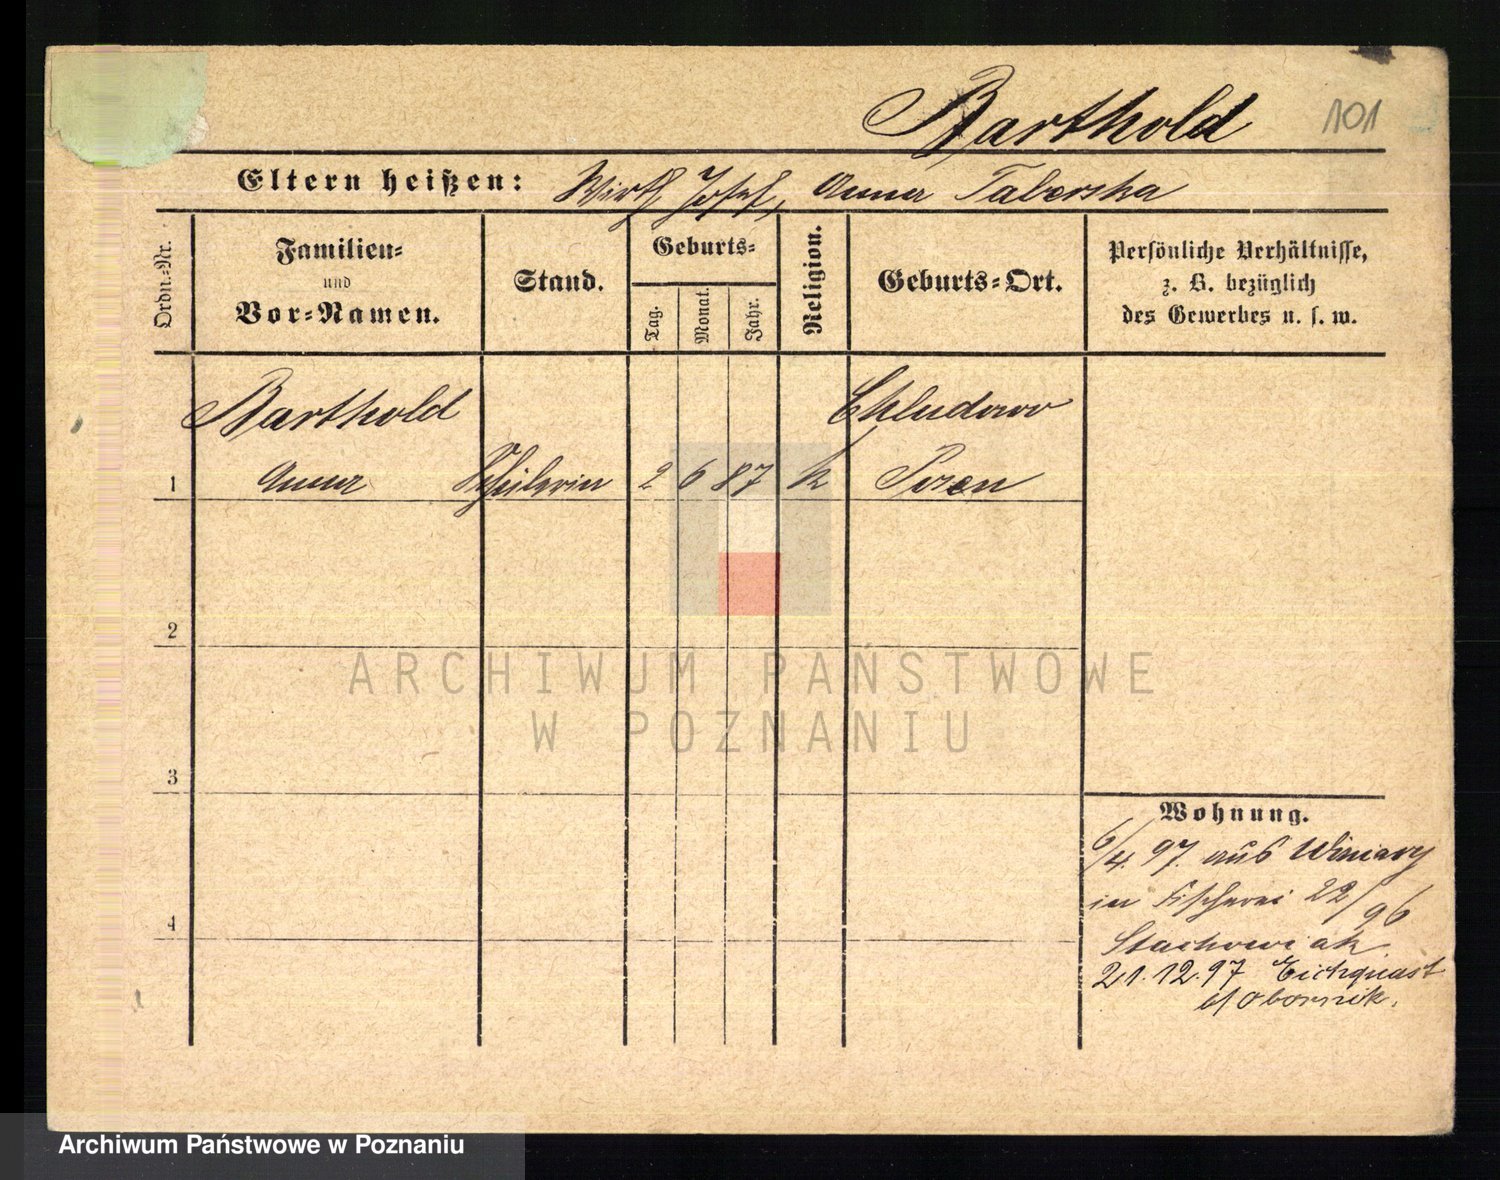 Barthold 101
Eltern heißen: Wirth Josef, Anna Taberska
Ordn.-Nr.
Familien-
und
Vor-Namen.
Stand.
Geburts-
Tag.
Monat.
Jahr.
Religion.
Geburts-Ort.
Persönliche Verhältnisse,
z. B. bezüglich
des Gewerbes u. s. w.
Barthold Chludowo
1 Anna Schülerin 2 6 87 k Posen
2
3
4
Wohnung.
6/4. 97. aus Winiary
in Fischerei 22/96
Stachowiak
21.12.97 Eichquast
b/Obornik.
ARCHIWUM PAŃSTWOWE
W POZNANIU
Archiwum Państwowe w Poznaniu